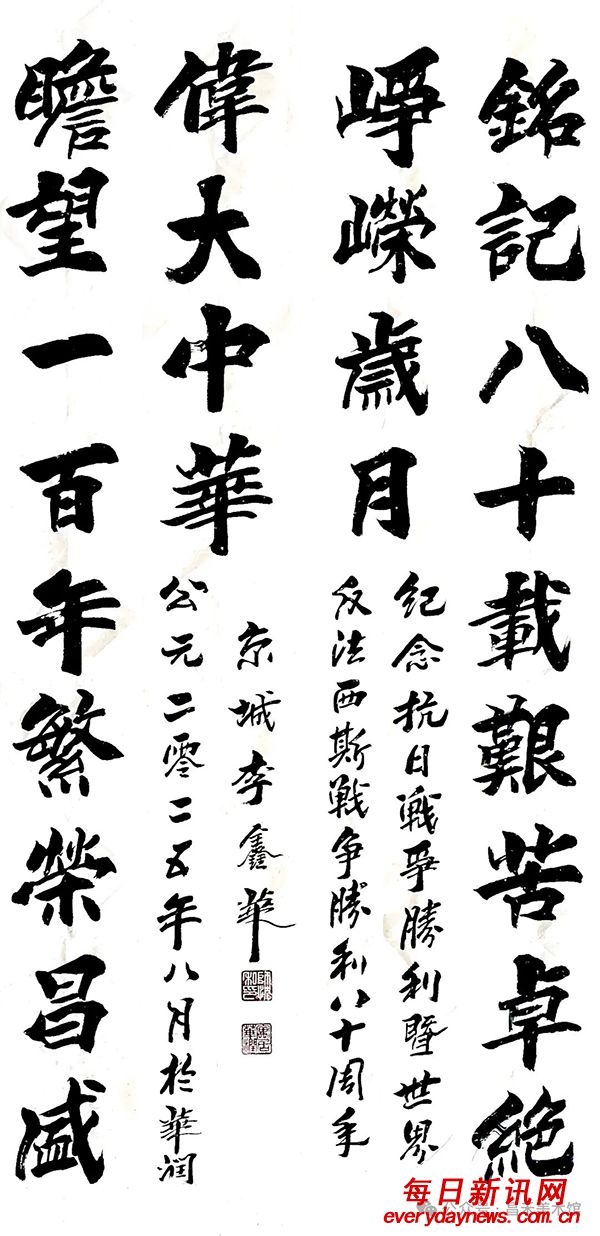 銘記八十載艱苦卓絶
崢嶸歲月
纪念抗日戰爭勝利暨世界
反法西斯戰争勝利八十周年
瞻望一百年繁榮昌盛
偉大中華
公元二零二五年八月於華润
京城李鑫華
每日新讯网
everydaynews.com.cn
公众号
美术馆